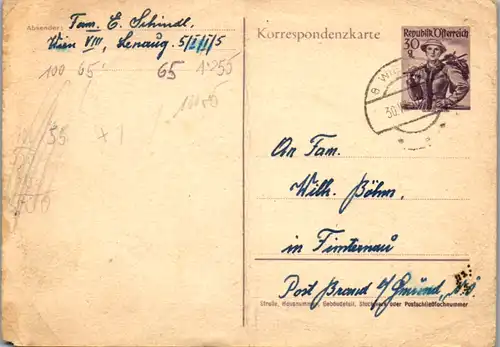 Absender: Fam. E. Schindl,
Wien VIII, Lenaug. 5/I/I/5
100 65 65 1255
55 + 1
Korrespondenzkarte
Republik Österreich
30 g
8 WI
30.V
An Fam.
Wilh. Böhm,
in Finternau
Post Brand b/Gmünd, N.Ö.
Straße, Hausnummer, Gebäudeteil, Stockwerk oder Postschließfachnummer